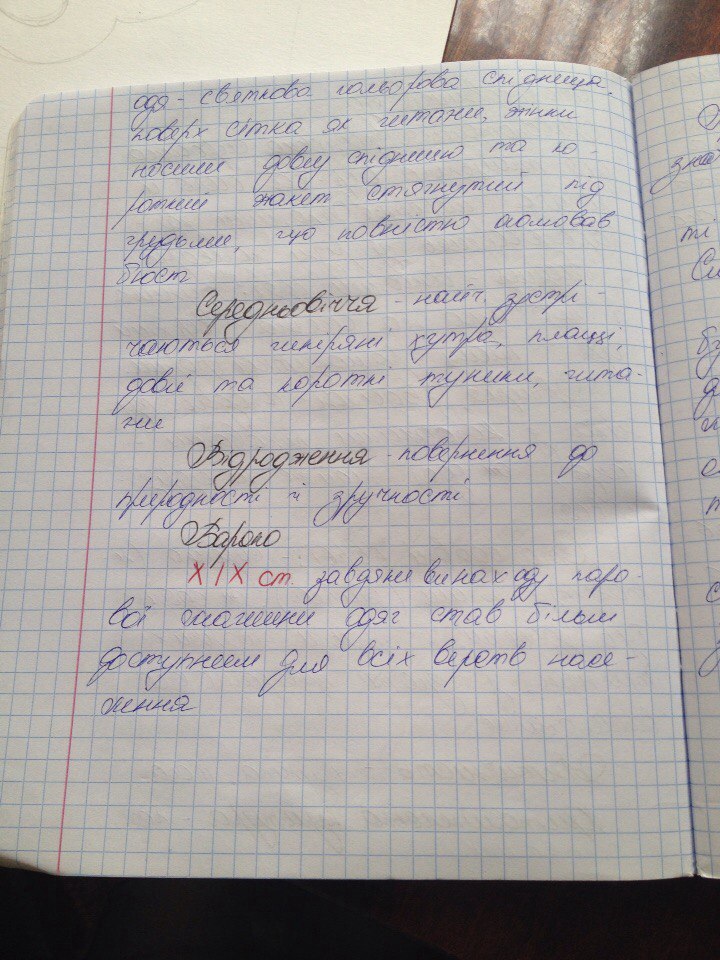 одя - святкова кольорова спідниця,
поверх сітка як штани, жінки
носили довгу спідницю та ко-
роткий жакет стягнутий під
грудьми, що повністю оголював
бюст
Середньовіччя - найч. зустрі-
чаються шкіряні хутра, плащі,
довгі та короткі туніки, шта-
ни
Відродження - повернення до
природності й зручності
Бароко
XIX ст. завдяки винаходу паро-
вої машини одяг став більш
доступнеем для всіх верств насе-
лення